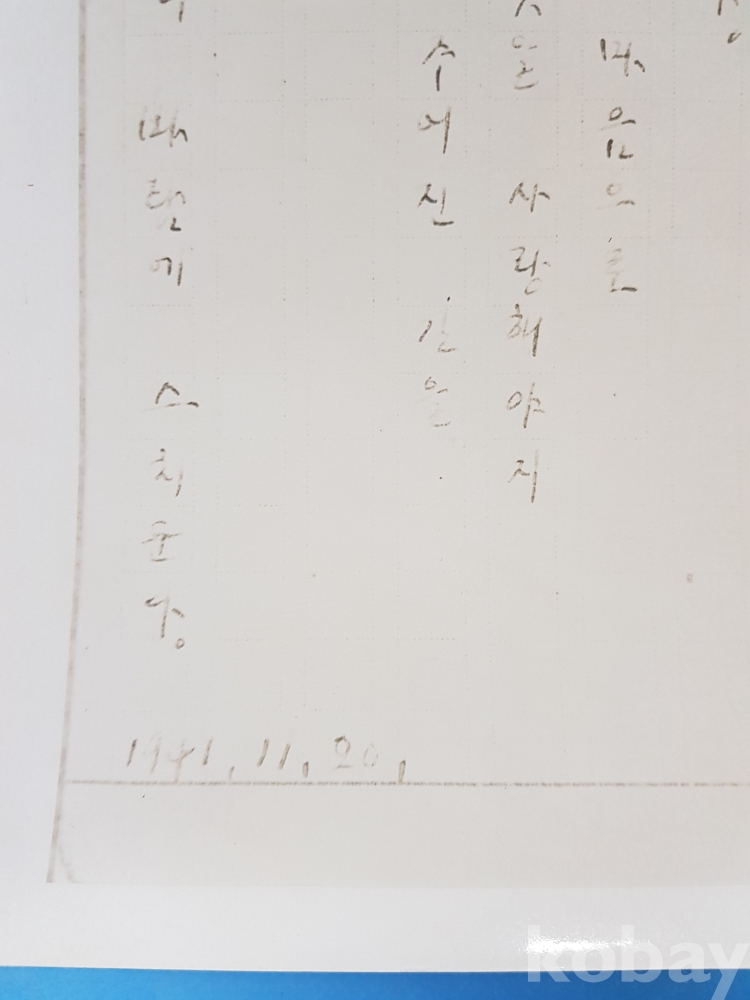 마음으로
을 사랑해야지
주어진 길을
바람에 스치운다.
1941.11.20.